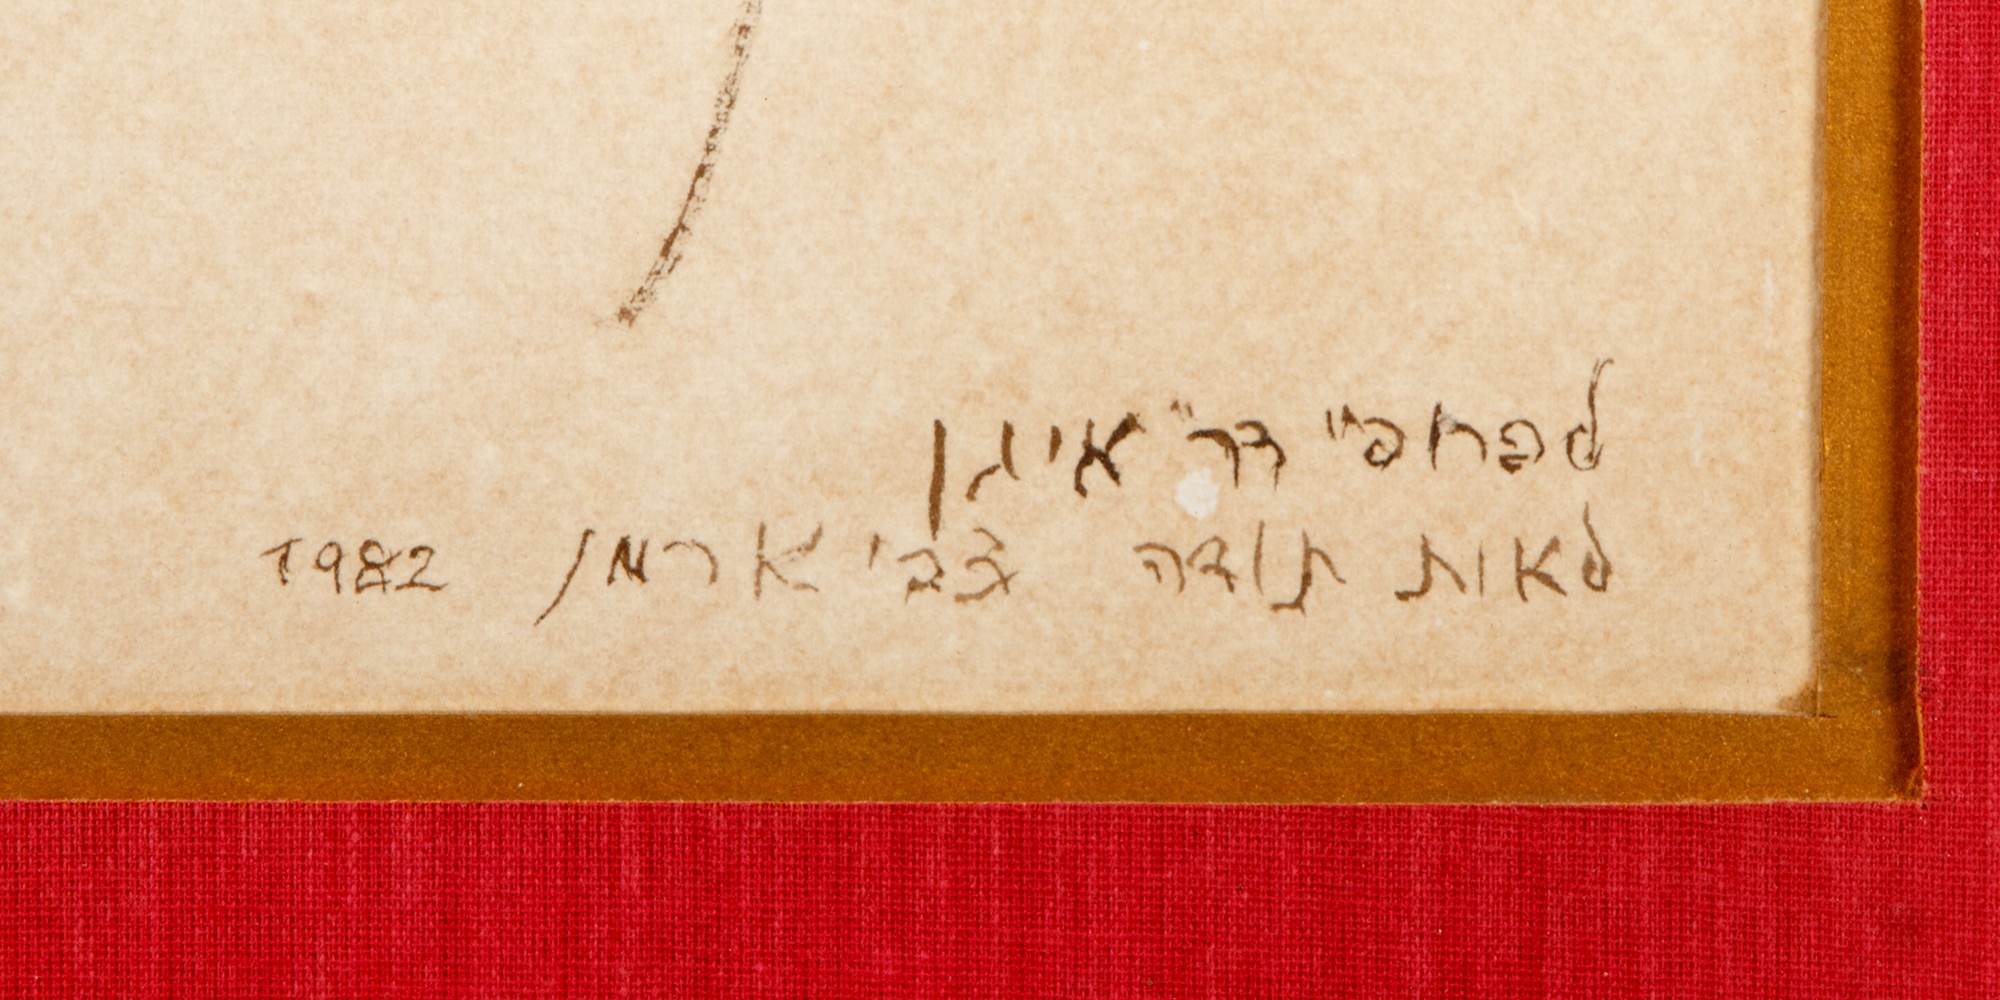 לפרופ" דר" איגן
לאות תודה צבי ארמן 1982